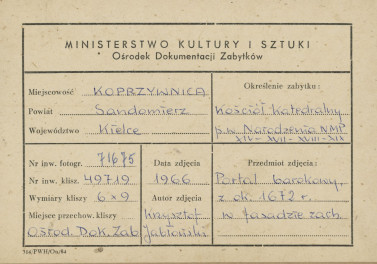 MINISTERSTWO KULTURY I SZTUKI
Ośrodek Dokumentacji Zabytków
Miejscowość KOPRZYWNICA
Powiat Sandomierz
Województwo Kielce
Określenie zabytku:
Kościół katedralny
p.w. Narodzenia NMP
XIV-XVII-XVIII-XIX
Nr inw. fotogr. 71675
Nr inw. klisz. 49719
Wymiary kliszy 6x9
Miejsce przechow. kliszy
Ośrod. Dok. Zab
Data zdjęcia
1966
Autor zdjęcia
Krzysztof
Jabłoński
Przedmiot zdjęcia:
Portal barokowy,
z ok. 1672 r.
w fasadzie zach